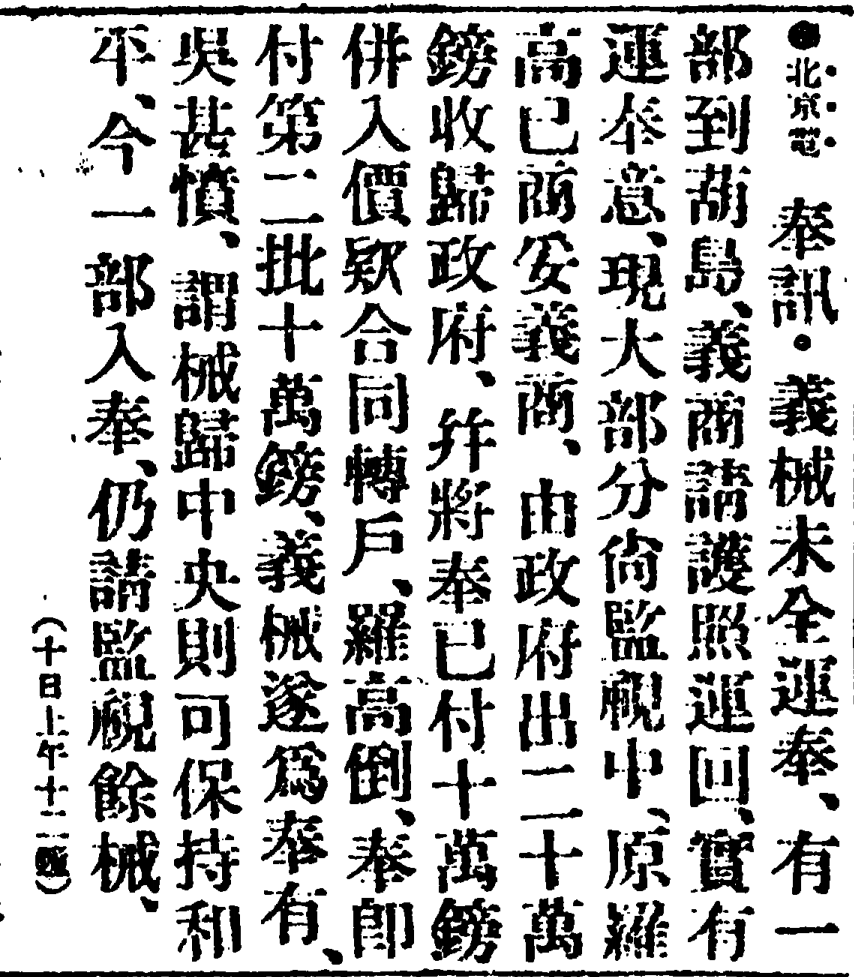 ●北京電　奉訊。義械未全運奉、有一
部到葫島、義商請護照運回、實有
運奉意、現大部分尙監視中、原羅
高已商妥義商、由政府出二十萬
鎊收歸政府、幷將奉已付十萬鎊
併入價欵合同轉戶、羅高倒、奉卽
付第二批十萬鎊、義械遂爲奉有、
吳甚憤、謂械歸中央則可保持和
平、今一部入奉、仍請監視餘械、
（十日上午十二鐘）